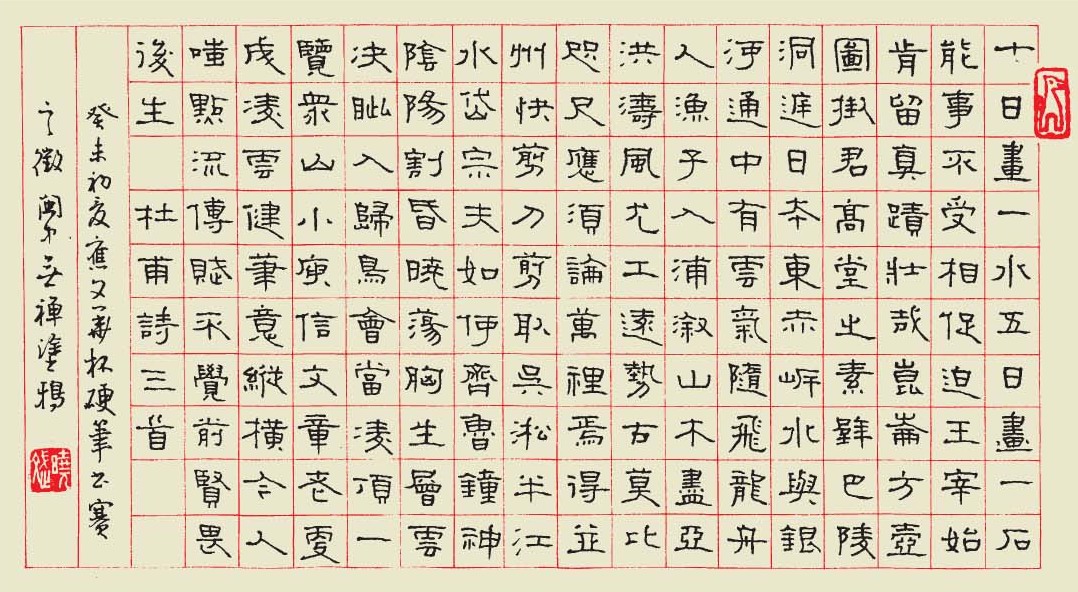 十日畫一水五日畫一石
能事不受相促迫王宰始
肯留真蹟壯哉崑崙方壺
圖掛君高堂之素壁巴陵
洞庭日本東赤岸水與銀
河通中有雲氣隨飛龍舟
人漁子入浦漵山木盡亞
洪濤風尤工遠勢古莫比
咫尺應須論萬裡焉得並
州快剪刀剪取吳淞半江
水岱宗夫如何齊魯鐘神
陰陽割昏曉蕩胸生層雲
決眦入歸鳥會當凌頂一
覽衆山小庾信文章老更
成凌雲健筆意縱橫今人
嗤點流傳賦不覺前賢畏
後生 杜甫詩三首
癸未初夏應文華杯硬筆書賽
之徵 閩 禪塗鴉